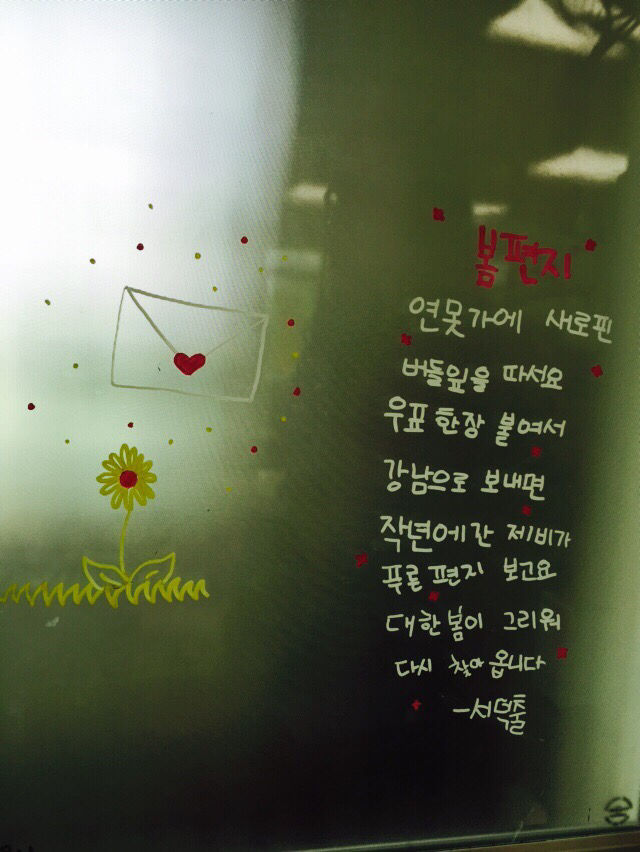 봄편지
연못가에 새로핀
버들잎을 따서요
우표한장 붙여서
강남으로 보내면
작년에간 제비가
푸른편지 보고요
대한봄이 그리워
다시 찾아옵니다
-서덕출